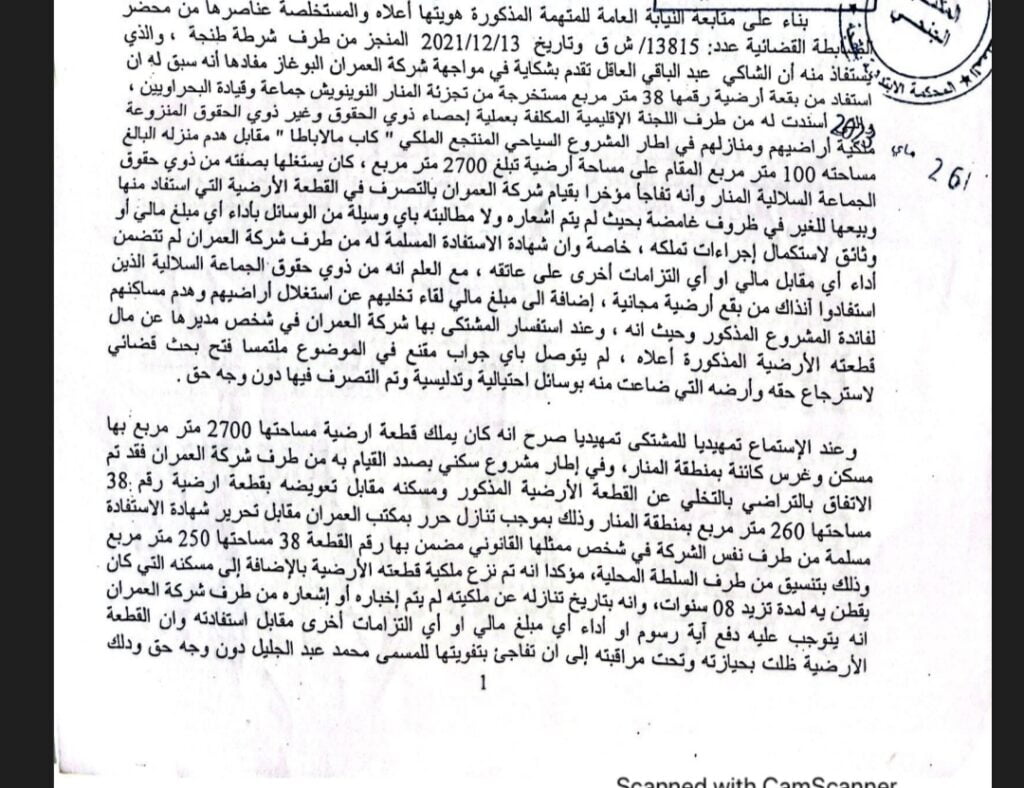 بناء على متابعة النيابة العامة للمتهمة المذكورة هويتها أعلاه والمستخلصة عناصرها من محضر
الضابطة القضائية عدد: 13815/ ش ق وتاريخ 2021/12/13 المنجز من طرف شرطة طنجة ، والذي
يستفاذ منه أن الشاكي عبد الباقي العاقل تقدم بشكاية في مواجهة شركة العمران البوغاز مفادها أنه سبق له ان
استفاد من بقعة أرضية رقمها 38 متر مربع مستخرجة من تجزئة المنار النوينويش جماعة وقيادة البحراويين ،
أسندت له من طرف اللجنة الإقليمية المكلفة بعملية إحصاء ذوي الحقوق وغير ذوي الحقوق المنزوعة
ملكية أراضيهم ومنازلهم في اطار المشروع السياحي المنتجع الملكي " كاب مالاباطا " مقابل هدم منزله البالغ
مساحته 100 متر مربع المقام على مساحة أرضية تبلغ 2700 متر مربع ، كان يستغلها بصفته من ذوي حقوق
الجماعة السلالية المنار وأنه تفاجأ مؤخرا بقيام شركة العمران بالتصرف في القطعة الأرضية التي استفاد منها
وبيعها للغير في ظروف غامضة بحيث لم يتم اشعاره ولا مطالبته باي وسيلة من الوسائل بأداء أي مبلغ مالي أو
وثائق لاستكمال إجراءات تملكه ، خاصة وان شهادة الاستفادة المسلمة له من طرف شركة العمران لم تتضمن
أداء أي مقابل مالي او أي التزامات أخرى على عاتقه ، مع العلم انه من ذوي حقوق الجماعة السلالية الذين
استفادوا آنذاك من بقع أرضية مجانية ، إضافة الى مبلغ مالي لقاء تخليهم عن استغلال أراضيهم وهدم مساكنهم
لفائدة المشروع المذكور وحيث انه ، وعند استفسار المشتكى بها شركة العمران في شخص مديرها عن مال
قطعته الأرضية المذكورة أعلاه ، لم يتوصل باي جواب مقنع في الموضوع ملتمسا فتح بحث قضائي
لاسترجاع حقه وأرضه التي ضاعت منه بوسائل احتيالية وتدليسية وتم التصرف فيها دون وجه حق .
وعند الإستماع تمهيديا للمشتكى تمهيديا صرح انه كان يملك قطعة ارضية مساحتها 2700 متر مربع بها
مسكن وغرس كائنة بمنطقة المنار، وفي إطار مشروع سكني بصدد القيام به من طرف شركة العمران فقد تم
الاتفاق بالتراضي بالتخلي عن القطعة الأرضية المذكور ومسكنه مقابل تعويضه بقطعة ارضية رقم 38
مساحتها 260 متر مربع بمنطقة المنار وذلك بموجب تنازل حرر بمكتب العمران مقابل تحرير شهادة الاستفادة
مسلمة من طرف نفس الشركة في شخص ممثلها القانوني مضمن بها رقم القطعة 38 مساحتها 250 متر مربع
وذلك بتنسيق من طرف السلطة المحلية، مؤكدا انه تم نزع ملكية قطعته الأرضية بالإضافة إلى مسكنه التي كان
يقطن يه لمدة تزيد 08 سنوات، وانه بتاريخ تنازله عن ملكيته لم يتم إخباره أو إشعاره من طرف شركة العمران
انه يتوجب عليه دفع أية رسوم او أداء أي مبلغ مالي او أي التزامات أخرى مقابل استفادته وان القطعة
الأرضية ظلت بحيازته وتحت مراقبته إلى ان تفاجئ بتفويتها للمسمى محمد عبد الجليل دون وجه حق ودلك
1
261
ماي
2023
Scanned with CamScanner